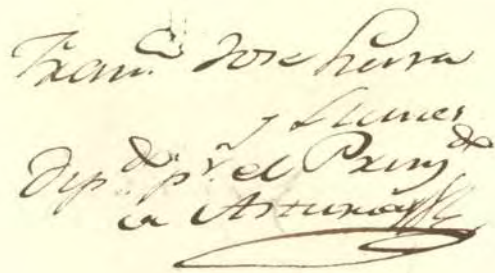 Fran.co Jose Sierra
y Llanes
Dip.do p.r el Prin.do
de Asturias